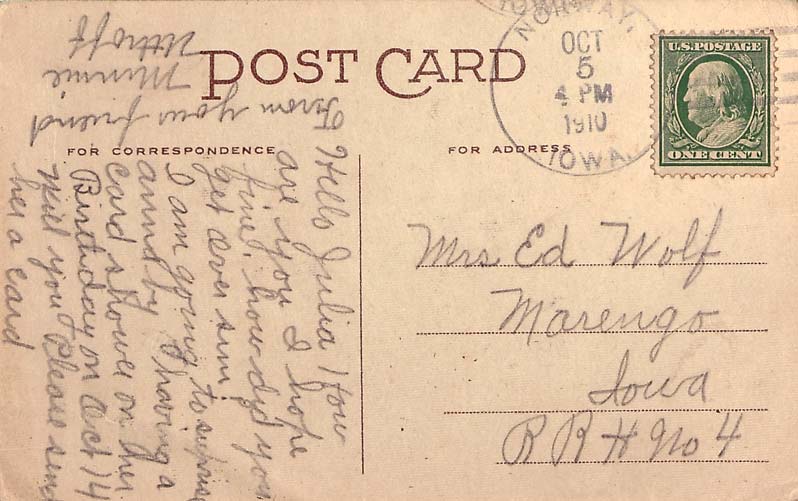 POST CARD
FOR CORRESPONDENCE
FOR ADDRESS
NORWAY,
OCT
5
4 PM
1910
IOWA.
U.S. POSTAGE
ONE CENT
Mrs Ed Wolf
Marengo
Iowa
R R # No 4
Hello Julia How
are you I hope
fine. how dyd you
get over
I am going to suprise
anna by having a
card shower on her
Birthday on Oct 14
Will you Please send
her a card
From your friend
Minnie
Uthoff